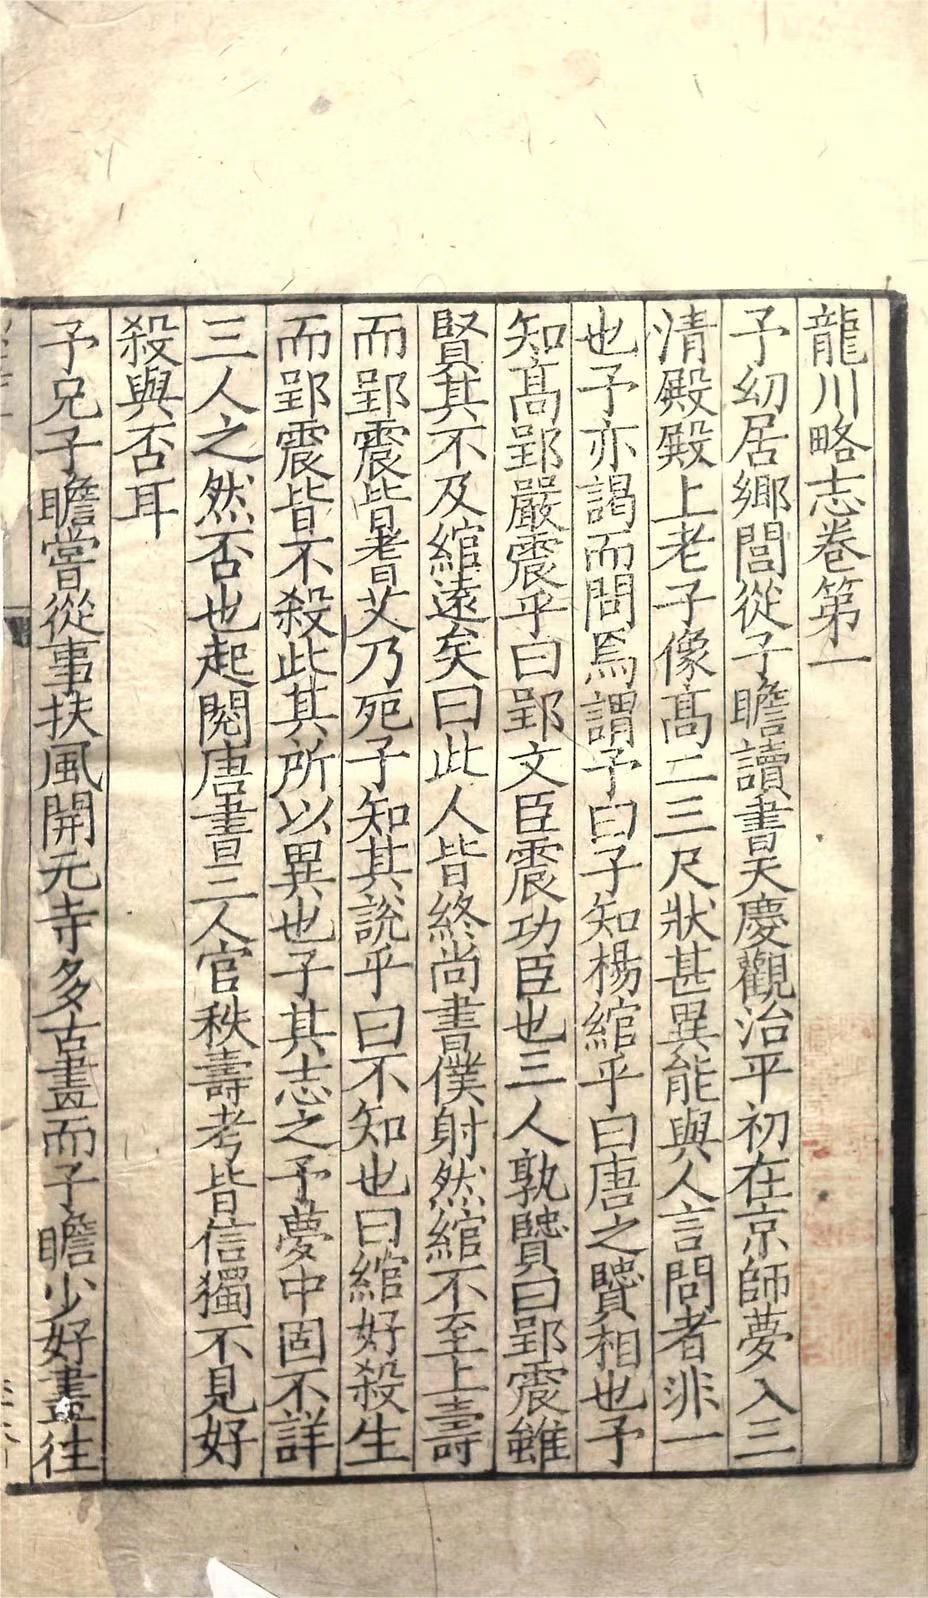 龍川略志卷第一
予幼居鄉閭從子瞻讀書天慶觀治平初在京師夢入三
清殿殿上老子像髙二三尺狀甚異能與人言問者非一
也予亦謁而問焉謂予曰子知楊綰乎曰唐之賢相也予
知髙郢嚴震乎曰郢文臣震功臣也三人孰賢曰郢震雖
賢其不及綰遠矣曰此人皆終尚書僕射然綰不至上壽
而郢震皆耆艾乃死子知其說乎曰不知也曰綰好殺生
而郢震皆不殺此其所以異也子其志之予夢中固不詳
三人之然否也起閱唐書三人官秩壽考皆信獨不見好
殺與否耳
予兄子瞻嘗從事扶風開元寺多古畫而子瞻少好畫往